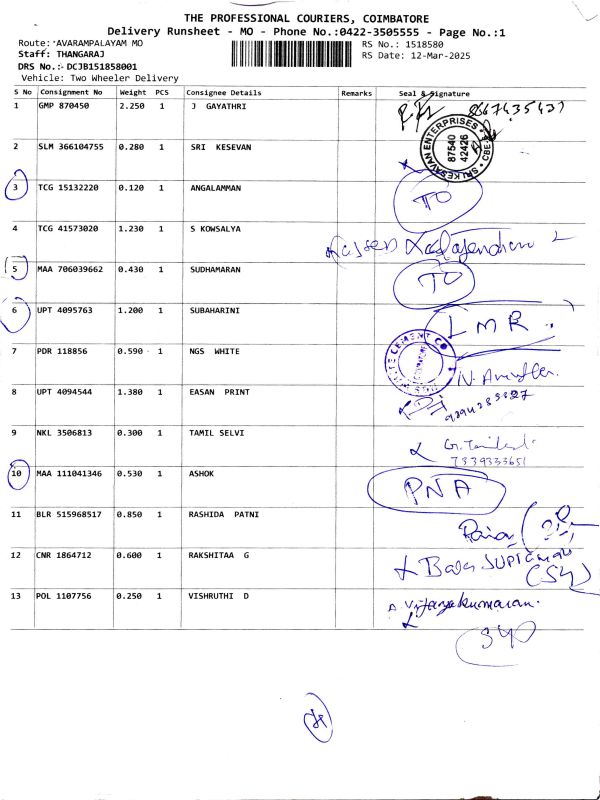 THE PROFESSIONAL COURIERS, COIMBATORE
Delivery Runsheet - MO - Phone No.:0422-3505555 - Page No.:1
Route: AVARAMPALAYAM MO RS No.: 1518580
Staff: THANGARAJ RS Date: 12-Mar-2025
DRS No.:- DCJB151858001
Vehicle: Two Wheeler Delivery
S No Consignment No Weight PCS Consignee Details Remarks Seal & Signature
1 GMP 870450 2.250 1 J GAYATHRI
2 SLM 366104755 0.280 1 SRI KESEVAN
SRI KESAVAN ENTERPRISES CBE
87540
42426
3 TCG 15132220 0.120 1 ANGALAMMAN TO
4 TCG 41573020 1.230 1 S KOWSALYA
5 MAA 706039662 0.430 1 SUDHAMARAN TO
6 UPT 4095763 1.200 1 SUBAHARINI LMR
7 PDR 118856 0.590 1 NGS WHITE
8 UPT 4094544 1.380 1 EASAN PRINT
9 NKL 3506813 0.300 1 TAMIL SELVI
7339333651
10 MAA 111041346 0.530 1 ASHOK PNA
11 BLR 515968517 0.850 1 RASHIDA PATNI
12 CNR 1864712 0.600 1 RAKSHITAA G
13 POL 1107756 0.250 1 VISHRUTHI D
A. Vijayakumaran.